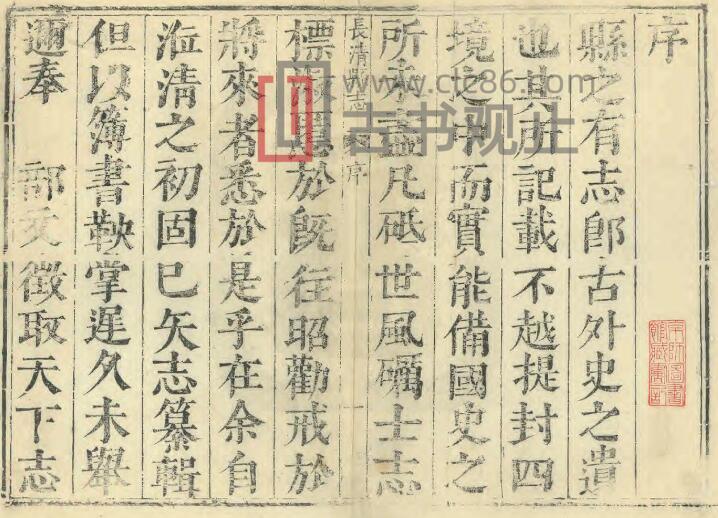 序
縣之有志即古外史之遺
也其所記載不越提封四
境之中而實能備國史之
所未盡凡砥世風礪士志
長清縣志 序 一
標淑慝於旣徃昭勸戒於
將來者悉於是乎在余自
涖清之初固已矢志纂輯
但以簿書鞅掌遲久未舉
邇奉 部文徵取天下志
京師圖書
館藏書印
www.ctc86.com
古书观止